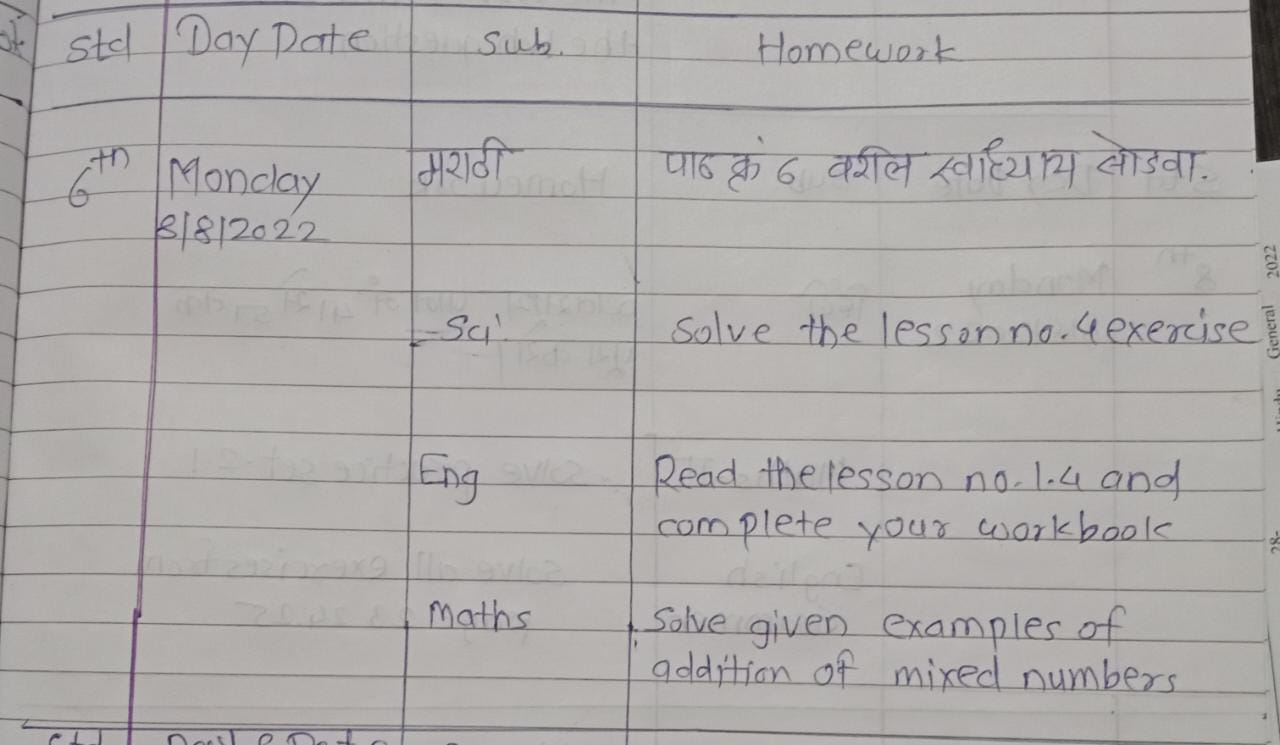 Std Day Date Sub. Homework
6th Monday मराठी पाठ क्रं 6 वरील स्वाध्याय सोडवा.
8/8/2022
Sci. Solve the lesson no. 4 exercise
Eng Read the lesson no. 1.4 and
complete your workbook
Maths Solve given examples of
addition of mixed numbers
General 2022
28-